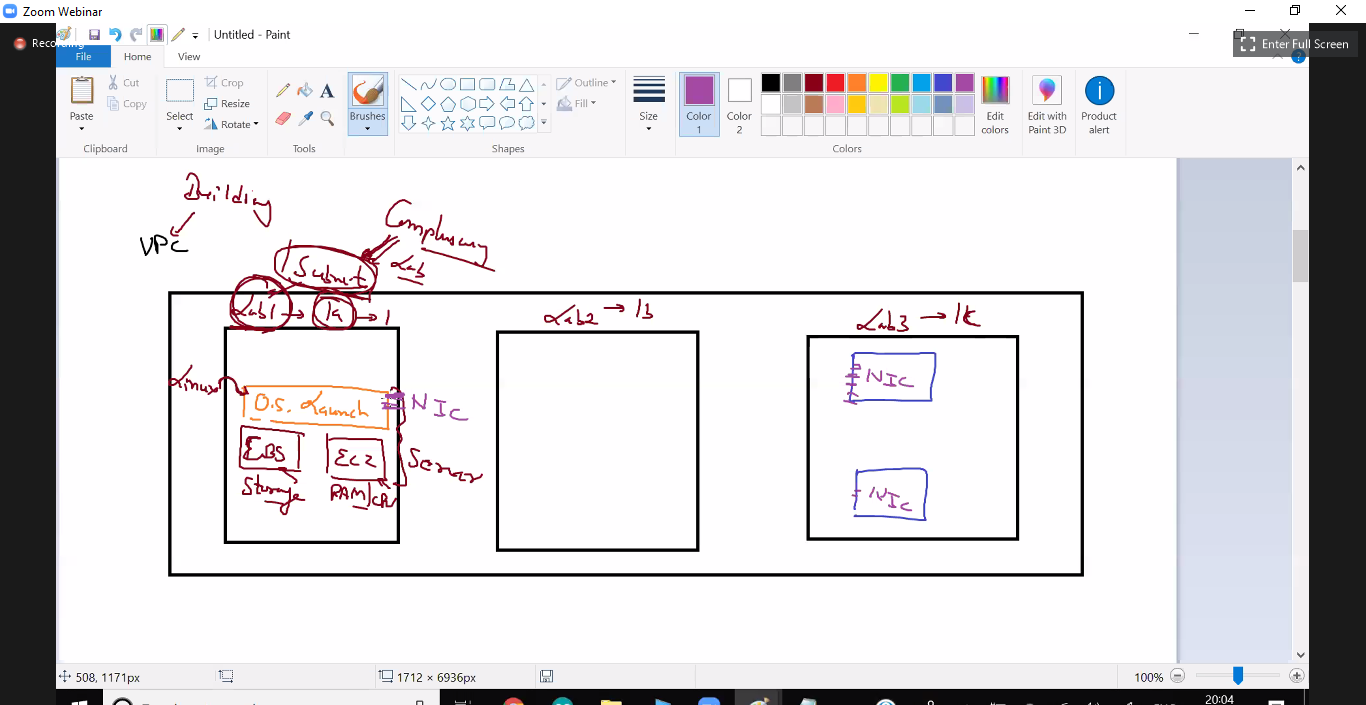 Zoom Webinar
Recording
Untitled - Paint
Enter Full Screen
File
Home
View
Paste
Cut
Copy
Clipboard
Select
Crop
Resize
Rotate
Image
A
Tools
Brushes
Outline
Fill
Shapes
Size
Color 1
Color 2
Edit colors
Colors
Edit with Paint 3D
Product alert
Building
VPC
Subnet
Lab
Lab1 → 1a → 1
Lab2 → 1B
Lab3 →
Linux
O.S. Launch
NIC
EBS
EC2
Server
Storage
RAM/CPU
NIC
NIC
508, 1171px
1712 × 6936px
100%
20:04